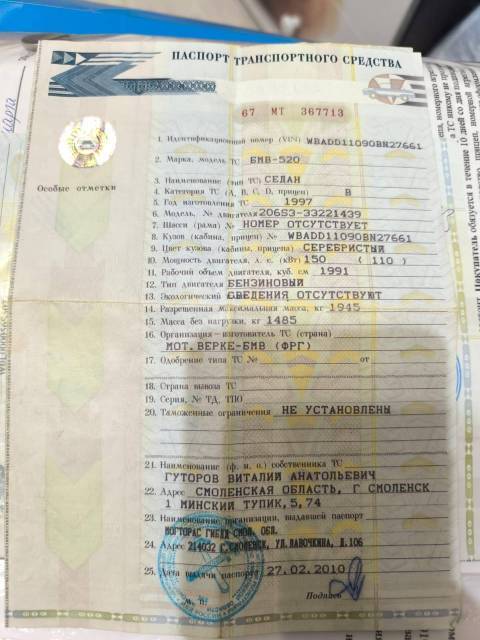 ПАСПОРТ ТРАНСПОРТНОГО СРЕДСТВА
67 МТ 367713
Особые отметки
1. Идентификационный номер (VIN) WBADD11090BN27661
2. Марка, модель ТС БМВ-520
3. Наименование (тип ТС) СЕДАН
4. Категория ТС (A, B, C, D, прицеп) B
5. Год изготовления ТС 1997
6. Модель, № двигателя 206S3-33221439
7. Шасси (рама) № НОМЕР ОТСУТСТВУЕТ
8. Кузов (кабина, прицеп) № WBADD11090BN27661
9. Цвет кузова (кабины, прицепа) СЕРЕБРИСТЫЙ
10. Мощность двигателя, л. с. (кВт) 150 ( 110 )
11. Рабочий объем двигателя, куб. см 1991
12. Тип двигателя БЕНЗИНОВЫЙ
13. Экологический СВЕДЕНИЯ ОТСУТСТВУЮТ
14. Разрешенная максимальная масса, кг 1945
15. Масса без нагрузки, кг 1485
16. Организация—изготовитель ТС (страна)
МОТ.ВЕРКЕ-БМВ (ФРГ)
17. Одобрение типа ТС № от
18. Страна вывоза ТС
19. Серия, № ТД, ТПО
20. Таможенные ограничения НЕ УСТАНОВЛЕНЫ
21. Наименование (ф. и. о.) собственника ТС
ГУТОРОВ ВИТАЛИЙ АНАТОЛЬЕВИЧ
22. Адрес СМОЛЕНСКАЯ ОБЛАСТЬ, Г СМОЛЕНСК
1 МИНСКИЙ ТУПИК,5,74
23. Наименование организации, выдавшей паспорт
МОГТОРАС ГИБДД СМОЛ. ОБЛ.
24. Адрес 214032 Г.СМОЛЕНСК, УЛ.ЛАВОЧКИНА, Д.106
25. Дата выдачи паспорта 27.02.2010
М. П. Подпись